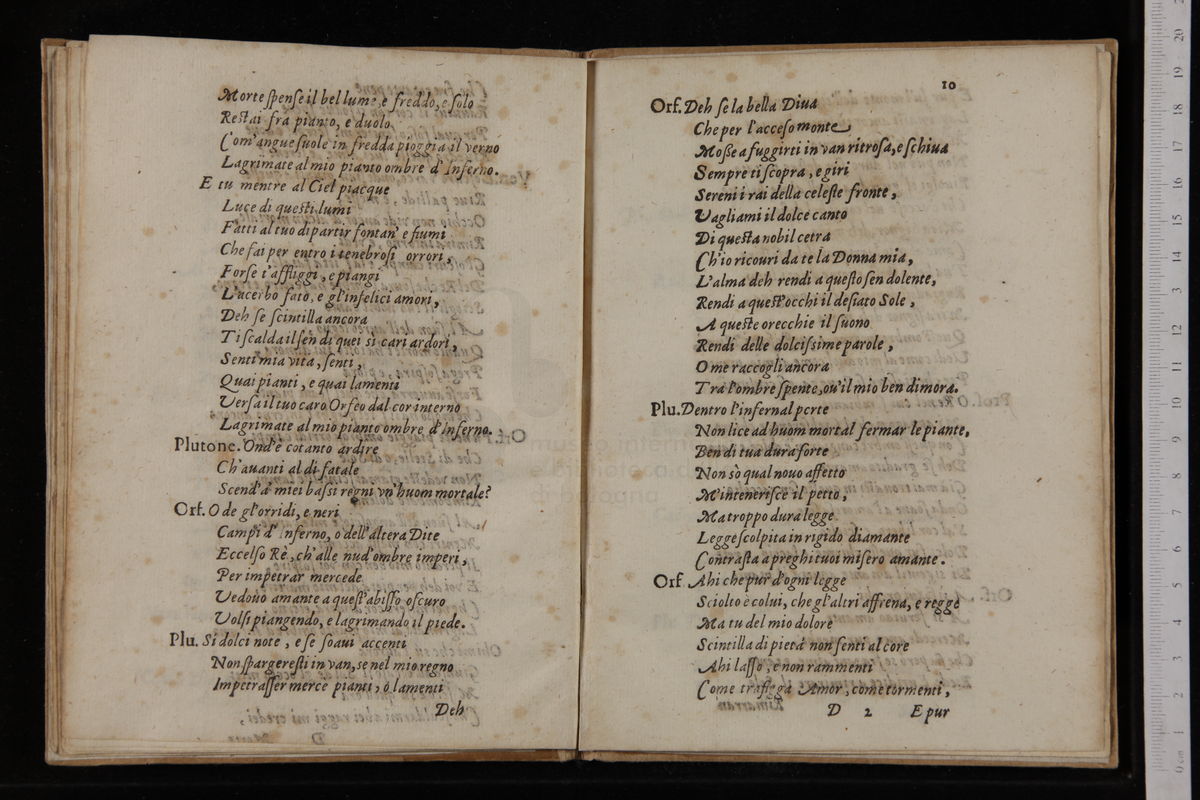 Morte ſpenſe il bel lume, e freddo, e ſolo
Reſtai frà pianto, e duolo
Com'angue ſuole in fredda pioggia il verno
Lagrimate al mio pianto ombre d'Inferno.
E tu mentre al Ciel piacque
Luce di queſti lumi
Fatti al tuo dipartir fontan' e fiumi
Che fai per entro i tenebroſi orrori,
Forſe t'affliggi, e piangi
L'acerbo fato, e gl'infelici amori,
Deh ſe ſcintilla ancora
Ti ſcalda il ſen di quei sì cari ardori,
Senti mia vita, ſenti,
Quai pianti, e quai lamenti
Verſa il tuo caro Orfeo dal cor interno
Lagrimate al mio pianto ombre d'Inferno.
Plutone. Ond'è cotanto ardire
Ch'auanti al dì fatale
Scend'à miei baſsi regni vn'huom mortale?
Orf. O de gl'orridi, e neri
Campi d'Inferno, ò dell'altera Dite
Eccelſo Rè, ch'alle nud'ombre imperi,
Per impetrar mercede
Vedouo amante a queſt'abiſſo oſcuro
Volſi piangendo, e lagrimando il piede.
Plu. Si dolci note, e ſe ſoaui accenti
Non ſpargereſti in van, se nel mio regno
Impetraſſer merce pianti, ò lamenti
Deh
10
Orf. Deh ſe la bella Diua
Che per l'acceſo monte
Moße a fuggirti in van ritroſa, e ſchiua
Sempre ti ſcopra, e giri
Sereni i rai della celeſte fronte,
Vagliami il dolce canto
Di queſta nobil cetra
Ch'io ricouri da te la Donna mia,
L'alma deh rendi a queſto ſen dolente,
Rendi a queſt'occhi il deſiato Sole,
A queſte orecchie il ſuono
Rendi delle dolciſsime parole,
O me raccogli ancora
Tra l'ombre ſpente, ou'il mio ben dimora.
Plu. Dentro l'infernal porte
Non lice ad huom mortal fermar le piante,
Ben di tua dura ſorte
Non sò qual nouo affetto
M'inteneriſce il petto,
Ma troppo dura legge
Legge ſcolpita in rigido diamante
Contraſta a preghi tuoi miſero amante.
Orf. Ahi che pur d'ogni legge
Sciolto è colui, che gl'altri affrena, e regge
Ma tu del mio dolore
Scintilla di pietà non ſenti al core
Ahi laſſo, e non rammenti
Come trafigga Amor, come tormenti,
D 2 E pur